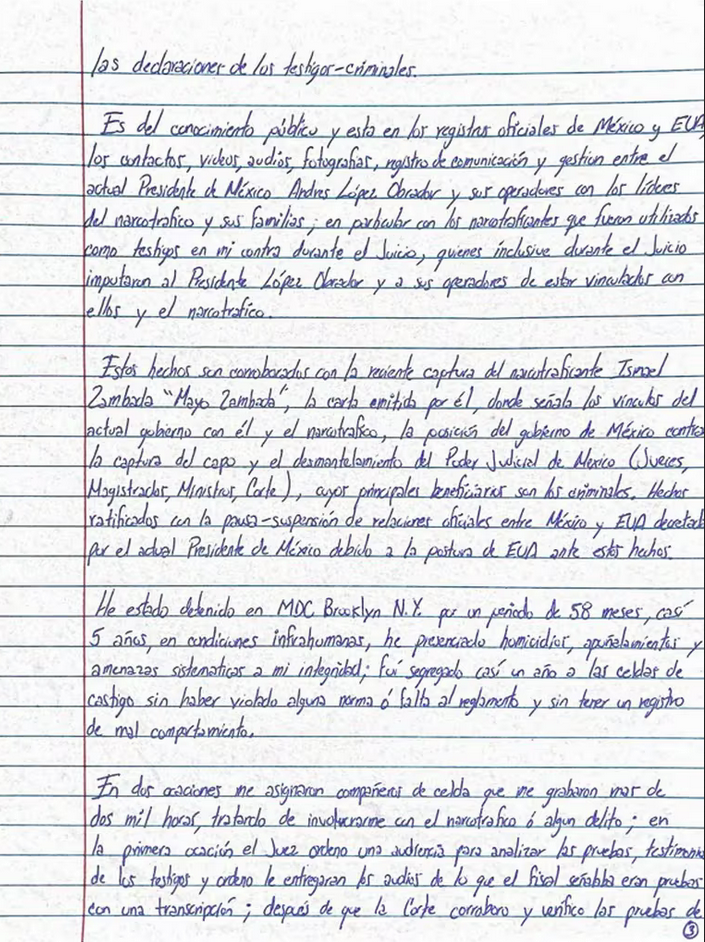 las declaraciones de los testigos-criminales.
Es del conocimiento público y esta en los registros oficiales de México y EUA,
los contactos, videos, audios, fotografias, registro de comunicación y gestion entre el
actual Presidente de México Andres López Obrador y sus operadores con los líderes
del narcotrafico y sus familias; en particular con los narcotraficantes que fueron utilizados
como testigos en mi contra durante el Juicio, quienes inclusive durante el Juicio
imputaron al Presidente López Obrador y a sus operadores de estar vinculados con
ellos y el narcotrafico.
Estos hechos son corroborados con la reciente captura del narcotraficante Ismael
Zambada "Mayo Zambada", la carta emitida por él, donde señala los vinculos del
actual gobierno con él y el narcotrafico, la posición del gobierno de México contra
la captura del capo y el desmantelamiento del Poder Judicial de Mexico (Jueces,
Magistrados, Ministros, Corte), cuyos principales beneficiarios son los criminales. Hechos
ratificados con la pausa-suspensión de relaciones oficiales entre México y EUA decretada
por el actual Presidente de México debido a la postura de EUA ante estos hechos.
He estado detenido en MDC Brooklyn N.Y. por un periodo de 58 meses, casí
5 años, en condiciones infrahumanas, he presenciado homicidios, apuñalamientos y
amenazas sistematicas a mi integridad; fuí segregado casí un año a las celdas de
castigo sin haber violado alguna norma ó falta al reglamento y sin tener un registro
de mal comportamiento.
En dos ocaciones me asignaron compañeros de celda que me grabaron mas de
dos mil horas, tratando de involucrarme con el narcotrafico ó algun delito; en
la primera ocación el Juez ordeno una audiencia para analizar las pruebas, testimonio
de los testigos y ordeno le entregaran los audios de lo que el fiscal señalaba eran pruebas
con una transcripción; después de que la Corte corroboro y verifico las pruebas de
3